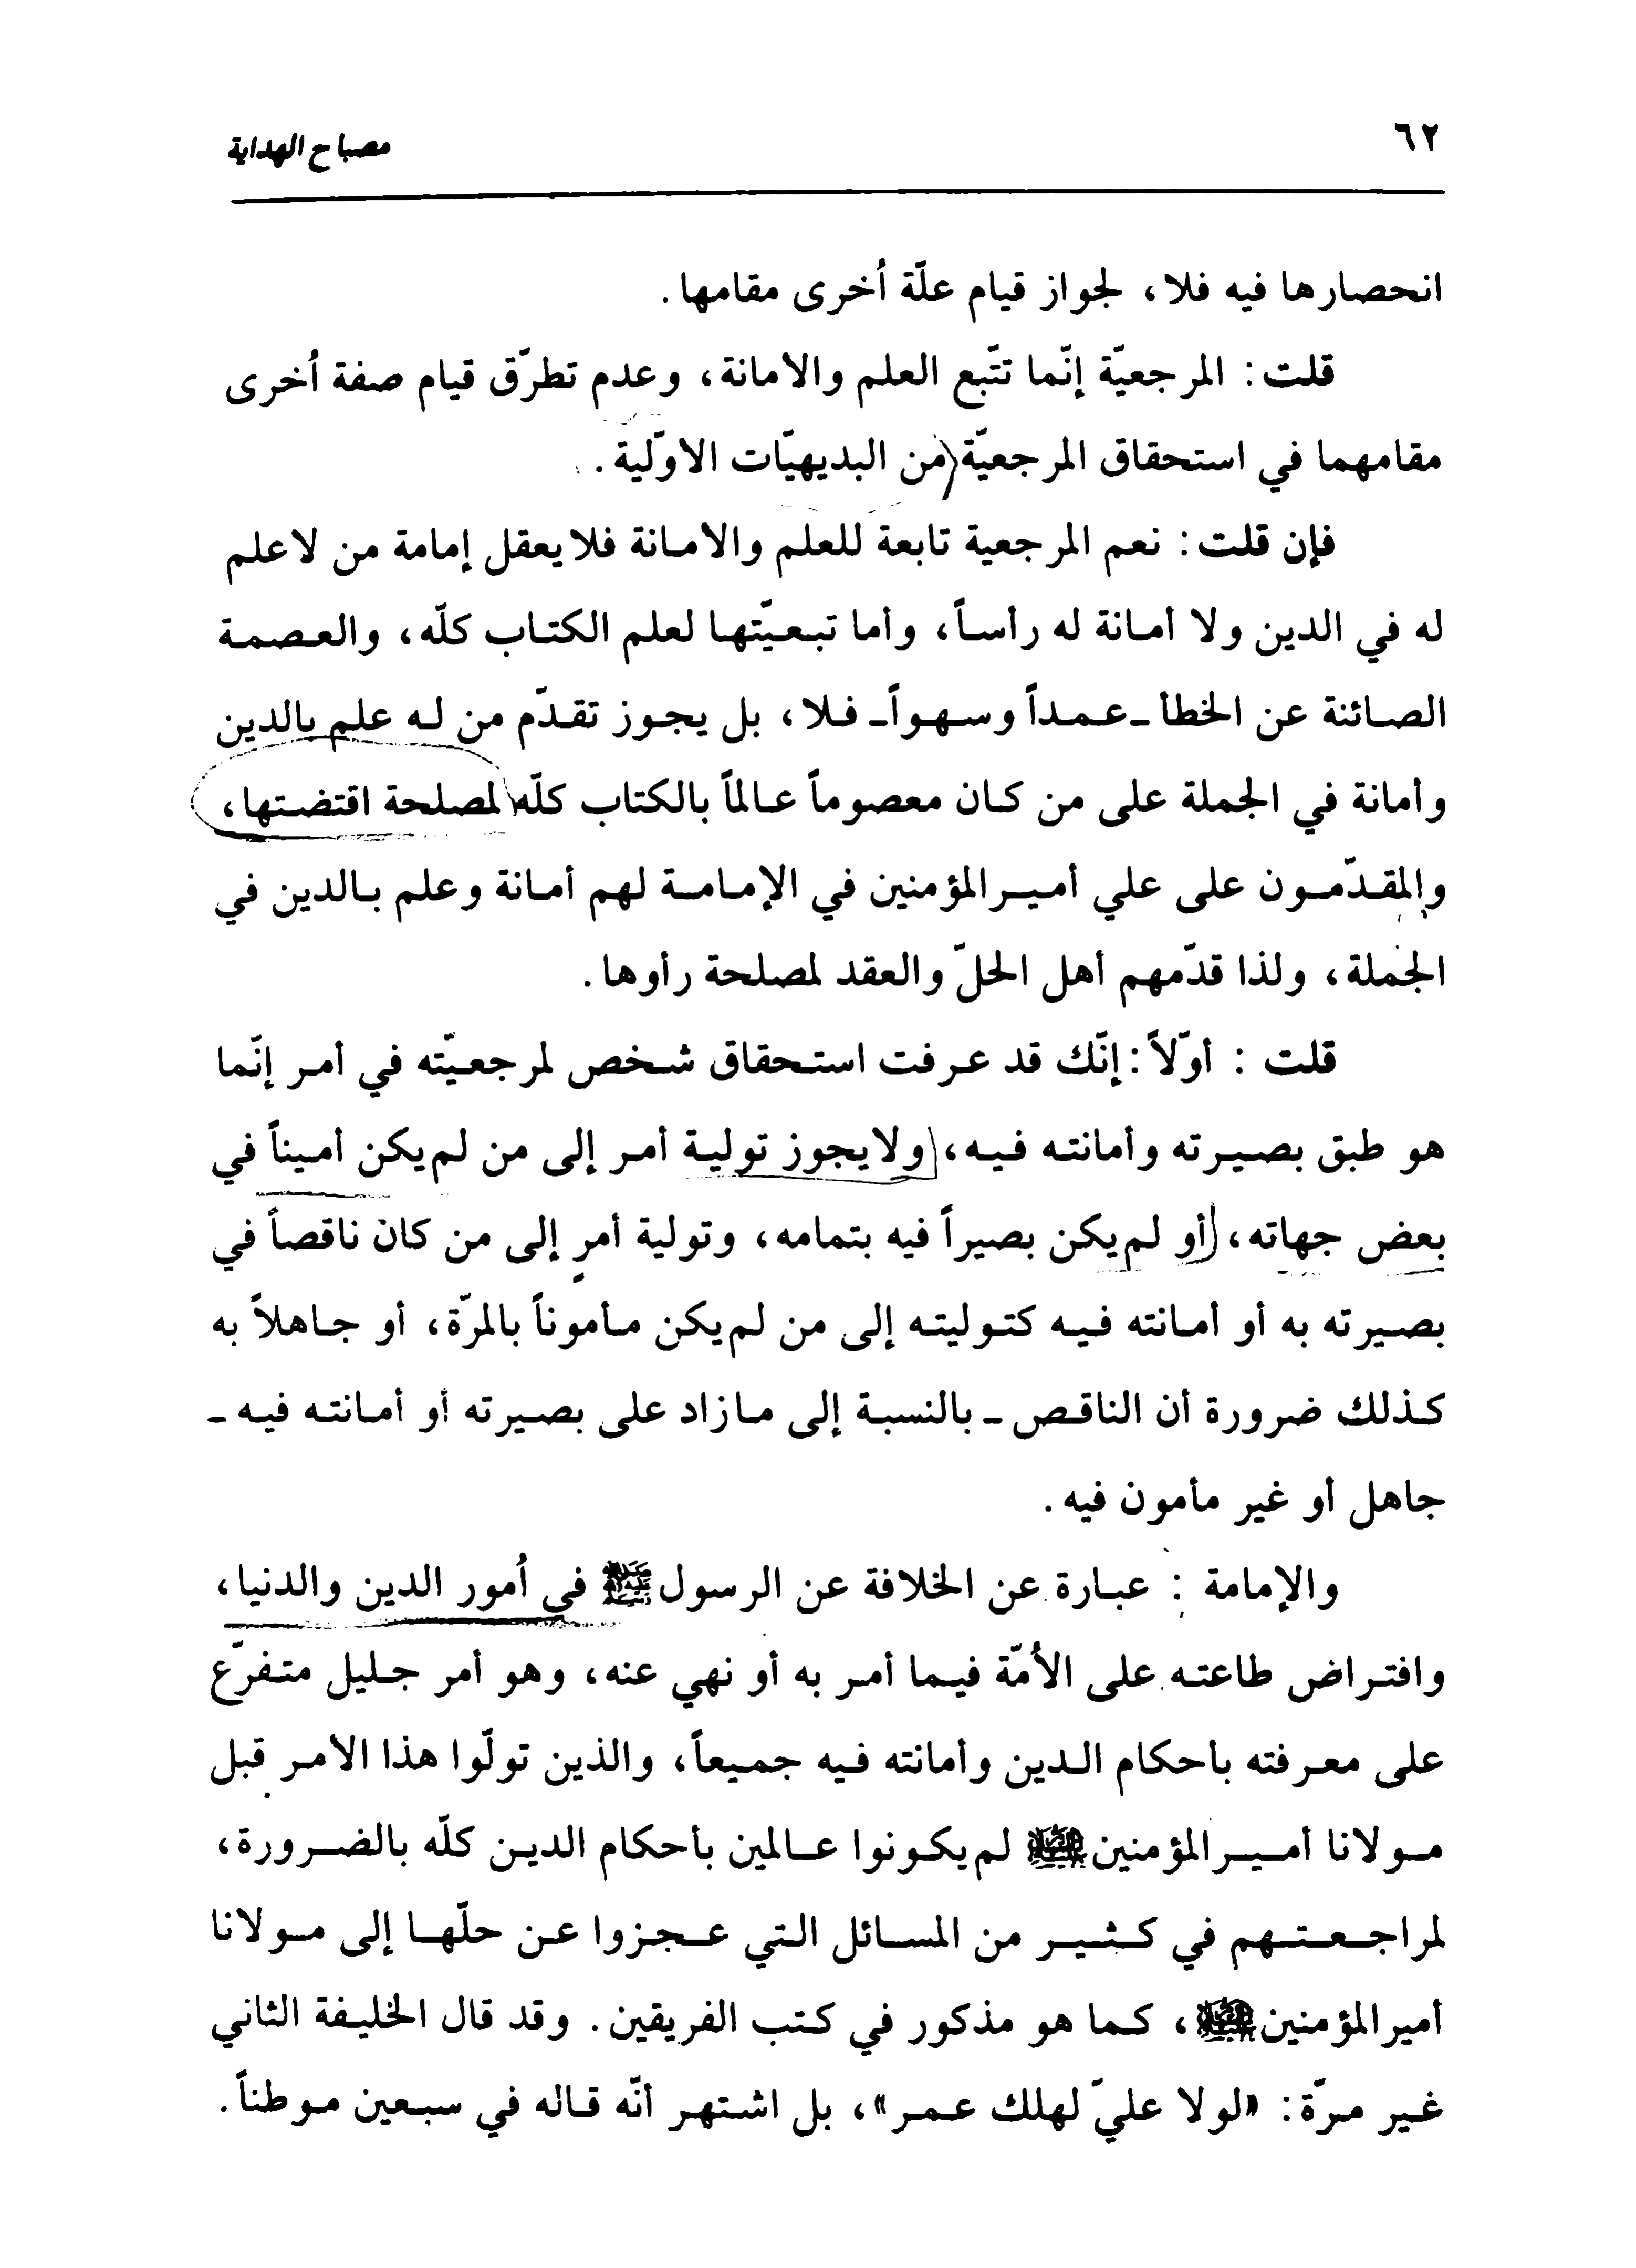 ٦٢
مصباح الهداية
انحصارها فيه فلا، لجواز قيام علّة أخرى مقامها.
قلت: المرجعيّة إنّما تتّبع العلم والامانة، وعدم تطرّق قيام صفة أخرى
مقامهما في استحقاق المرجعيّة من البديهيّات الاوّلية.
فإن قلت: نعم المرجعية تابعة للعلم والامانة فلايعقل إمامة من لاعلم
له في الدين ولا أمانة له رأساً، وأما تبعيّتها لعلم الكتاب كلّه، والعصمة
الصائنة عن الخطأ ـ عمداً وسهواً ـ فلا، بل يجوز تقدّم من له علم بالدين
وأمانة في الجملة على من كان معصوماً عالماً بالكتاب كلّه لمصلحة اقتضتها،
والمقدّمون على علي أميرالمؤمنين في الإمامة لهم أمانة وعلم بالدين في
الجملة، ولذا قدّمهم أهل الحلّ والعقد لمصلحة رأوها.
قلت : أوّلاً: إنّك قد عرفت استحقاق شخص لمرجعيّته في أمر إنّما
هو طبق بصيرته وأمانته فيه، ولايجوز تولية أمر إلى من لم‌يكن أميناً في
بعض جهاته، أو لم‌يكن بصيراً فيه بتمامه، وتولية أمرٍ إلى من كان ناقصاً في
بصيرته به أو أمانته فيه كتوليته إلى من لم‌يكن مأموناً بالمرّة، أو جاهلاً به
كذلك ضرورة أن الناقص ـ بالنسبة إلى مازاد على بصيرته أو أمانته فيه ـ
جاهل أو غير مأمون فيه.
والإمامة : عبارة عن الخلافة عن الرسول ﷺ في أمور الدين والدنيا،
وافتراض طاعته على الأمّة فيما أمر به أو نهي عنه، وهو أمر جليل متفرّع
على معرفته بأحكام الدين وأمانته فيه جميعاً، والذين تولّوا هذا الامر قبل
مولانا أميرالمؤمنين لم‌يكونوا عالمين بأحكام الدين كلّه بالضرورة،
لمراجعتهم في كثير من المسائل التي عجزوا عن حلّها إلى مولانا
أميرالمؤمنين، كما هو مذكور في كتب الفريقين. وقد قال الخليفة الثاني
غير مرّة: «لولا عليّ لهلك عمر»، بل اشتهر أنّه قاله في سبعين موطناً.